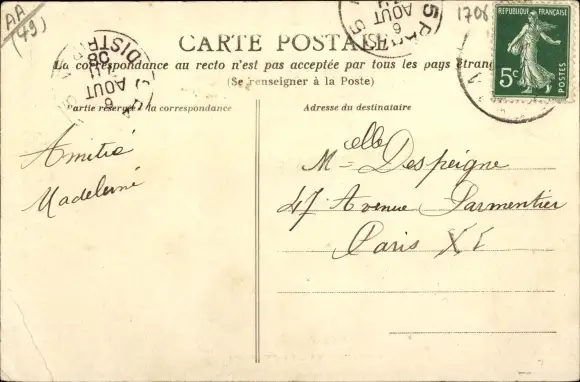 AA
(49)
1708
CARTE POSTALE
La correspondance au recto n'est pas acceptée par tous les pays étrang
(Se renseigner à la Poste)
Partie réservée à la correspondance
Adresse du destinataire
RÉPUBLIQUE FRANÇAISE
5c
POSTES
6
AOUT
08
DISTRI
6
AOUT
Amitié
Madeleine
Melle Despeigne
47 Avenue Parmentier
Paris XI